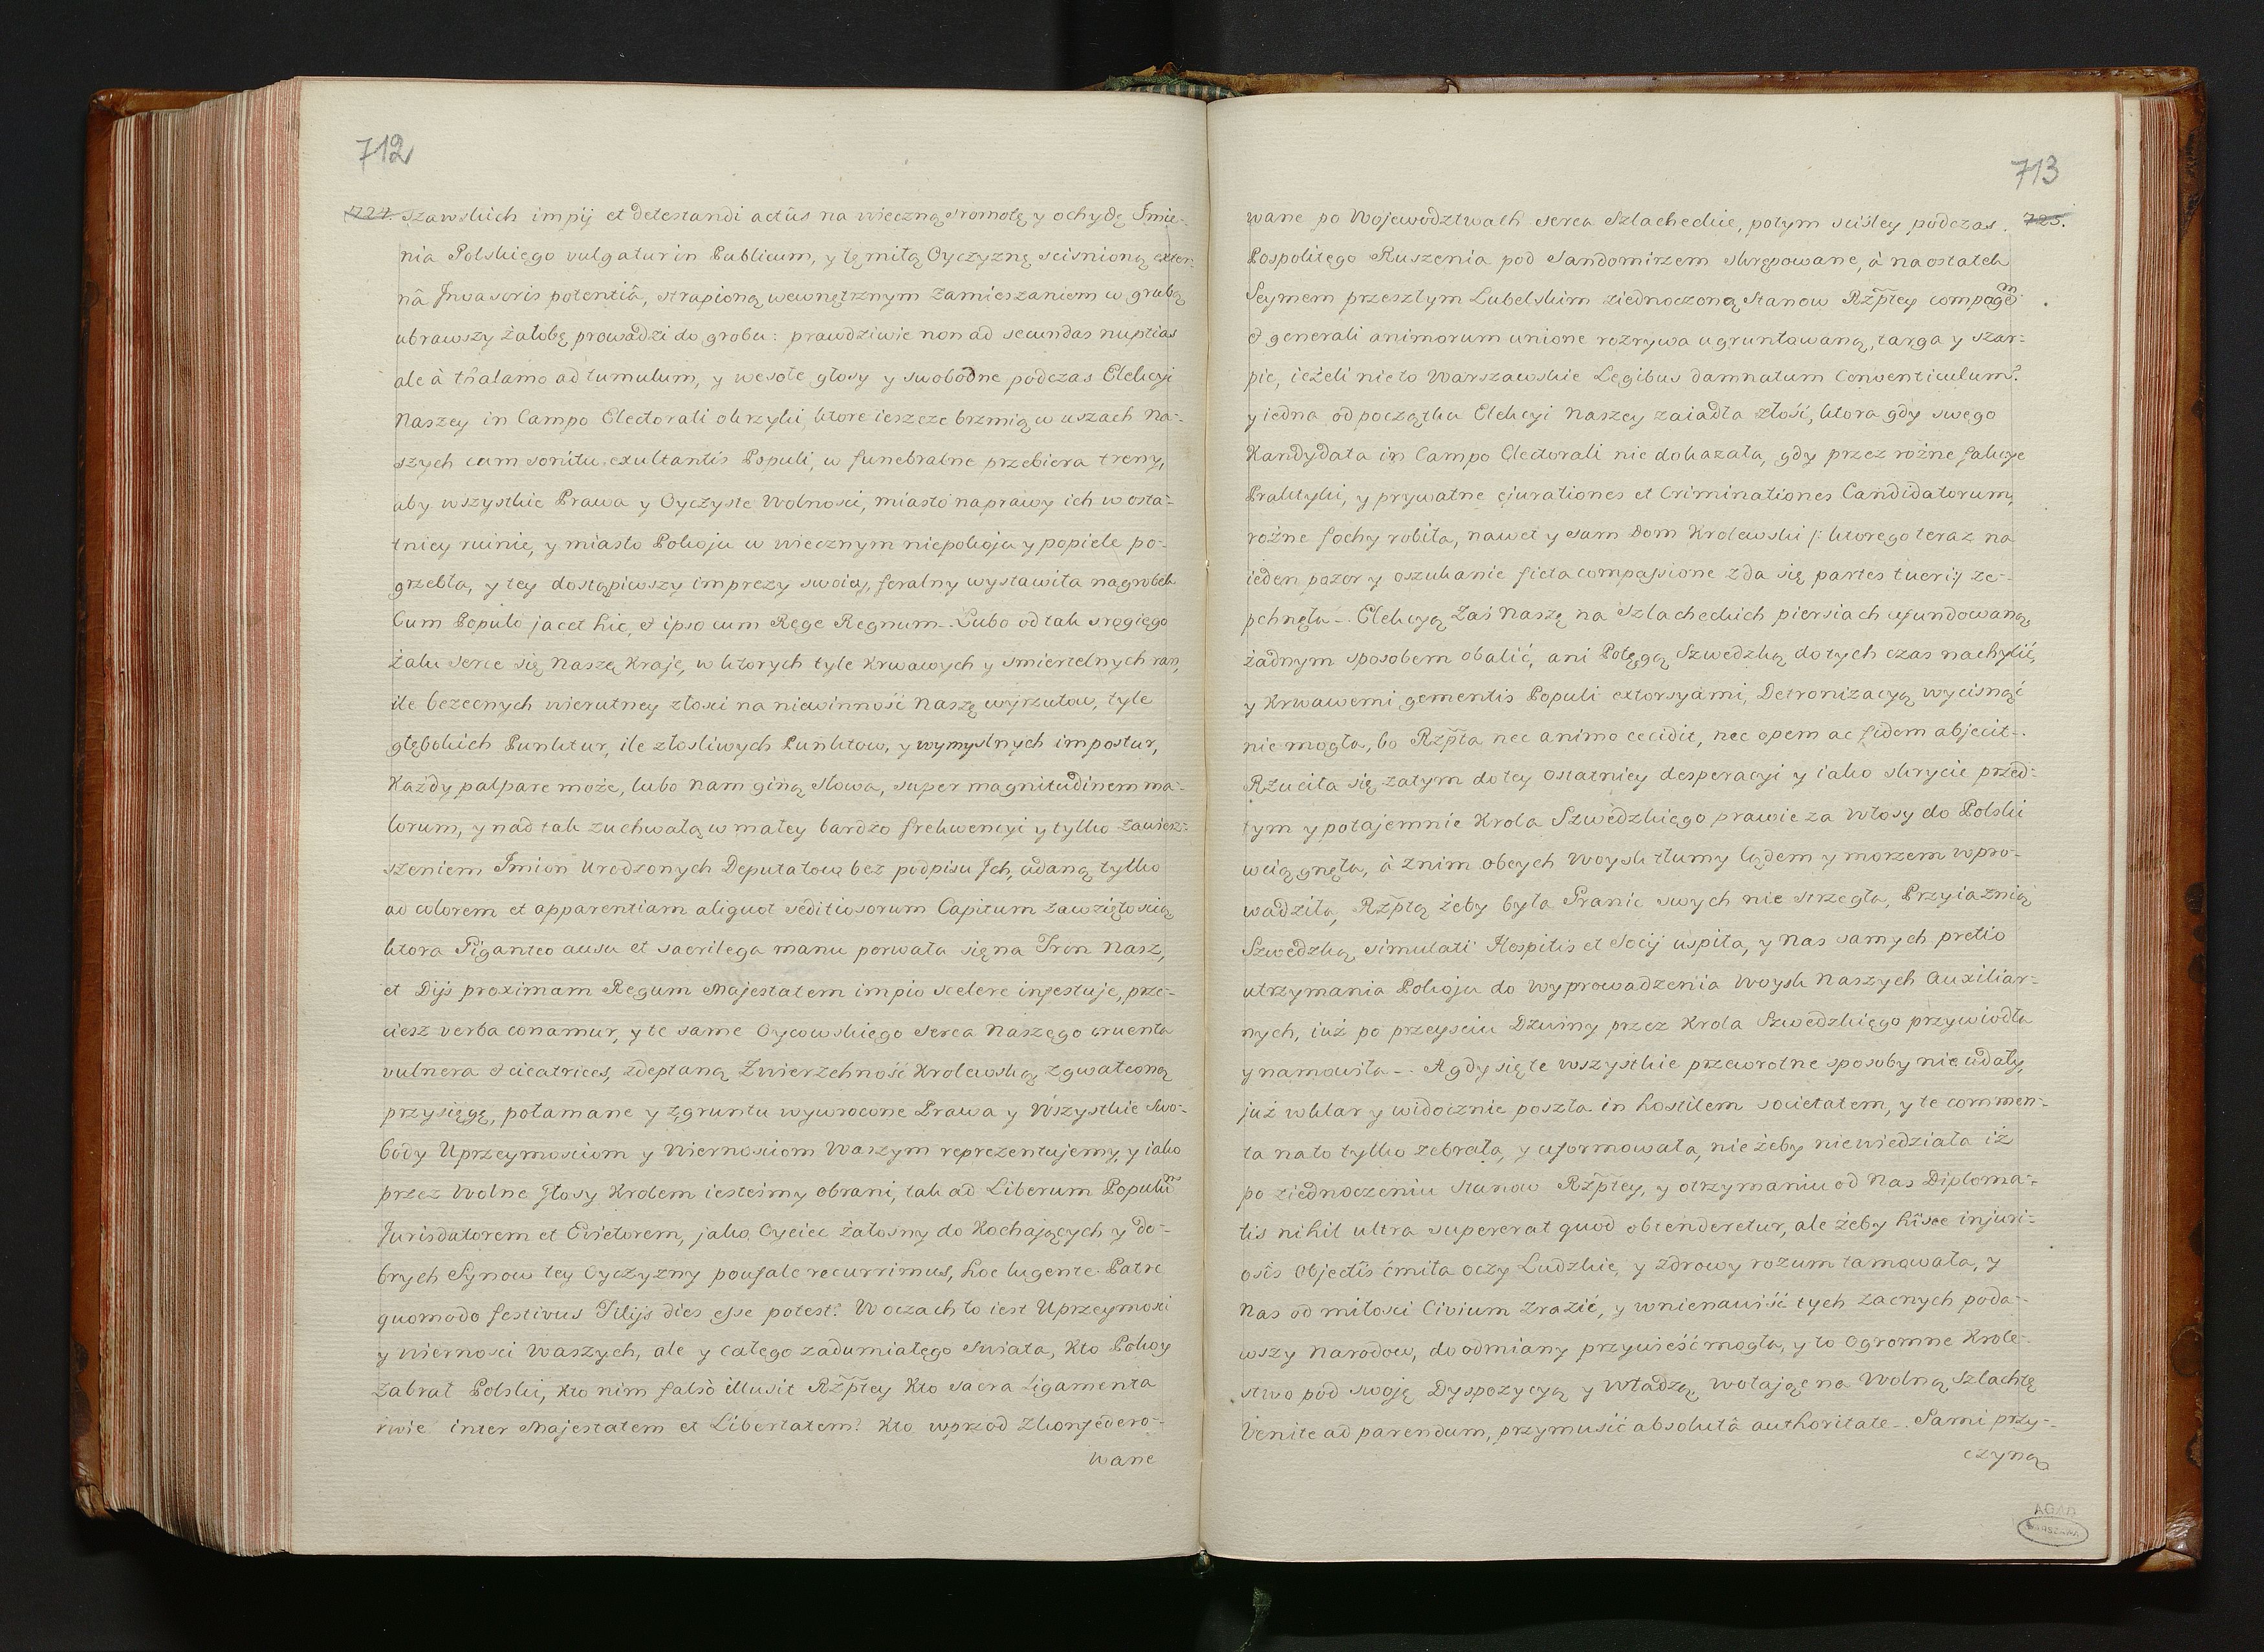 712
724. szawskich impij et detestandi actûs na wieczną sromotę y ochydę Jmie-
nia Polskiego vulgatur in Publicum, y tę miłą Oyczyznę scisnioną exter-
nâ Jnvasoris potentiâ, strapioną wewnętrznym zamieszaniem w grubą
ubrawszy żałobę prowadzi do grobu: prawdziwie non ad secundas nuptias
ale à thalamo ad tumulum, y wesołe głosy y swobodne podczas Elekcyi
Naszey in Campo Electorali okrzyki, ktore ieszcze brzmią w uszach Na-
szych cum sonitu exultantis Populi, w funebralne przebiera treny,
aby wszystkie Prawa y Oyczyste Wolnosci, miasto naprawy ich w osta-
tniey ruinie, y miasto Pokoju w wiecznym niepokoju y popiele po-
grzebła, y tey dostąpiwszy imprezy swoiey, feralny wystawiła nagrobek
Cum Populo jacet hic, et ipso cum Rege Regnum. Lubo od tak srogiego
żalu serce się Nasze Kraje, w ktorych tyle Krwawych y smiertelnych ran,
ile bezecnych wierutney złosci na niewinność Naszę wyrzutow, tyle
głębokich Punktur, ile złosliwych Punktow, y wymyslnych impostur,
Każdy palpare może, lubo Nam giną słowa, super magnitudinem ma-
lorum, y nad tak zuchwałą w małey bardzo frekwencyi y tylko zawiesz-
szeniem Jmion Urodzonych Deputatow bez podpisu Jch, udaną tylko
ad colorem et apparentiam aliquot seditiosorum Capitum zawziętoscią
ktora Giganteo ausu et sacrilega manu porwała się na Tron Nasz,
et Dijs proximam Regum Majestatem impio scelere infestuje, prze-
ciesz verba conamur, y te same Oycowskiego Serca Naszego cruenta
vulnera et cicatrices, zdeptaną Zwierzchność Krolewską, zgwałconą
przysięgę, połamane y z gruntu wywrocone Prawa y Wszystkie Swo-
body Uprzeymosciom y Wiernosciom Waszym reprezentujemy, y iako
przez Wolne głosy Krolem iestesmy obrani, tak ad Liberum Populum
Jurisdatorem et Evictorem, jako Oyciec żałosny do Kochających y do-
brych Synow tey Oyczyzny poufale recurrimus, hoc lugente Patre
quomodo festivus Filijs dies esse potest? W oczach to iest Uprzeymosci
y Wiernosci Waszych, ale y całego zadumiałego Swiata, Kto Pokoy
Zabrał Polski, Kto nim falsò illusit Rzptey Kto sacra Ligamenta
rwie inter Majestatem et Libertatem? Kto wprzod Zkonfedero-
wane
713
wane po Wojewodztwach serca Szlacheckie, potym sciśley podczas 725.
Pospolitego Ruszenia pod Sandomirzem skrępowane, à na ostatek
Seymem przeszłym Lubelskim ziednoczoną Stanow Rzptey compagem
et generali animorum unione rozrywa ugruntowaną, targa y szar-
pie, ieżeli nie to Warszawskie Legibus damnatum Conventiculum?
y iedna od początku Elekcyi Naszey zaiadła złość, ktora gdy swego
Kandydata in Campo Electorali nie dokazała, gdy przez rożne fakcye
Praktyki, y prywatne ejurationes et Criminationes Candidatorum,
rożne fochy robiła, nawet y sam Dom Krolewski /: ktorego teraz na
ieden pozor y oszukanie ficta compassione zda się partes tueri :/ ze-
pchnęła. Elekcyą Zaś Naszę na Szlacheckich piersiach ufundowaną,
żadnym sposobem obalić, ani Potęgą Szwedzką do tych czas nachylić,
y Krwawemi gementis Populi extorsyami, Detronizacyą wycisnąć
nie mogła, bo Rzpta nec animo cecidit, nec opem ac fidem abjecit.
Rzuciła się zatym do tey ostatniey desperacyi y iako skrycie przed-
tym y potajemnie Krola Szwedzkiego prawie za Włosy do Polski
wciągnęła, à z nim obcych Woysk tłumy lądem y morzem wpro-
wadziła, Rzptą żeby była Granic swych nie strzegła, Przyiaznią
Szwedzką, simulati Hospitis et Socij uspiła, y Nas samych pretio
utrzymania Pokoju do wyprowadzenia Woysk Naszych Auxiliar-
nych, iuż po przeysciu Dzwiny przez Krola Szwedzkiego przywiodła
y namowiła. A gdy się te wszystkie przewrotne sposoby nie udały,
już w klar y widocznie poszła in hostilem societatem, y te commen-
ta na to tylko zebrała, y uformowała, nie żeby niewiedziała iż
po ziednoczeniu Stanow Rzptey, y otrzymaniu od Nas Diploma-
tis nihil ultra supererat quod obtenderetur, ale żeby hîsce injuri-
osîs Objectîs ćmiła oczy Ludzkie, y zdrowy rozum tamowała, y
Nas od miłosci Civium zrazić, y w nienawiść tych zacnych poda-
wszy Narodow, do odmiany przywieść mogła, y to Ogromne Krole-
stwo pod swoję Dyspozycyą y Władzą, wołając na Wolną Szlachtę
Venite ad parendum, przymusić absolutâ authoritate. Sami przy-
czyną
AGAD
WARSZAWA